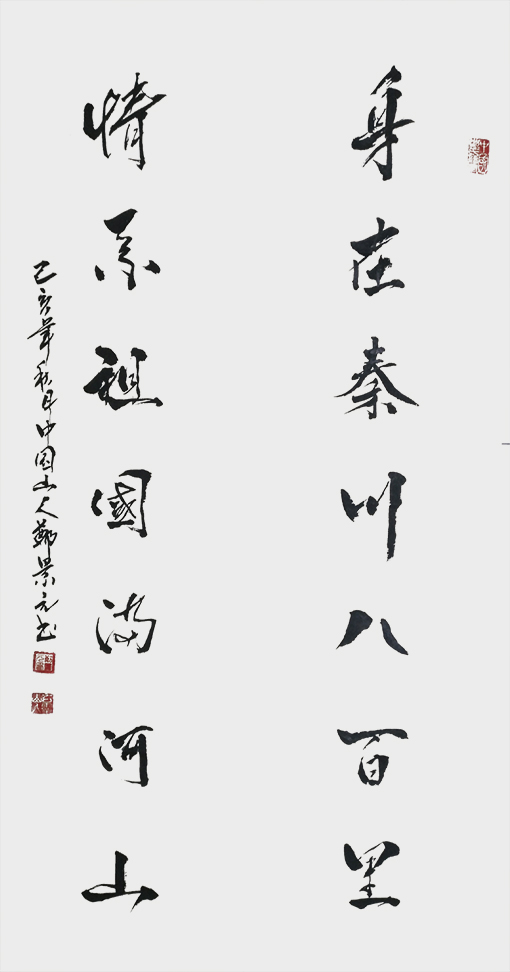 身在秦川八百里
情系祖國满河山
己亥年秋月中国山人鄭景元书